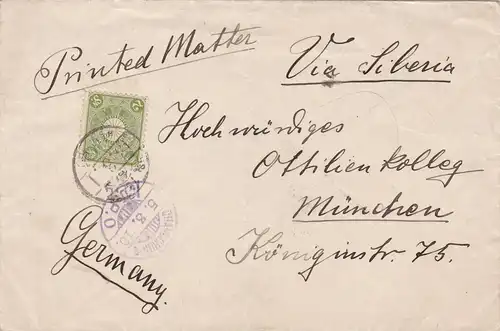 Printed Matter
Via Siberia
Hochwürdiges
Ottilienkolleg
München
Königinstr. 75.
Germany.